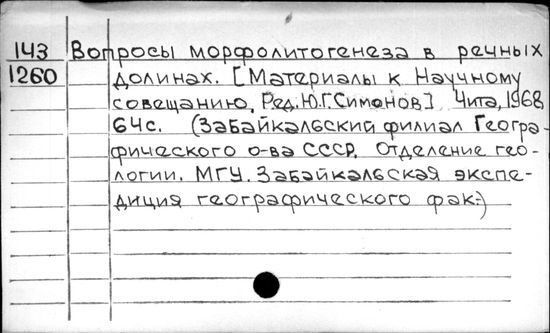 143 Вопросы морфолитогенеза в речных
1260 долинах. [Материалы к Научному
совещанию, Ред. Ю.Г.Симонов] Чита, 1968
64с. (Забайкальский филиал Геогра-
фического о-ва СССР. Отделение гео-
логии. МГУ. Забайкальская экспе-
диция географического фак-)